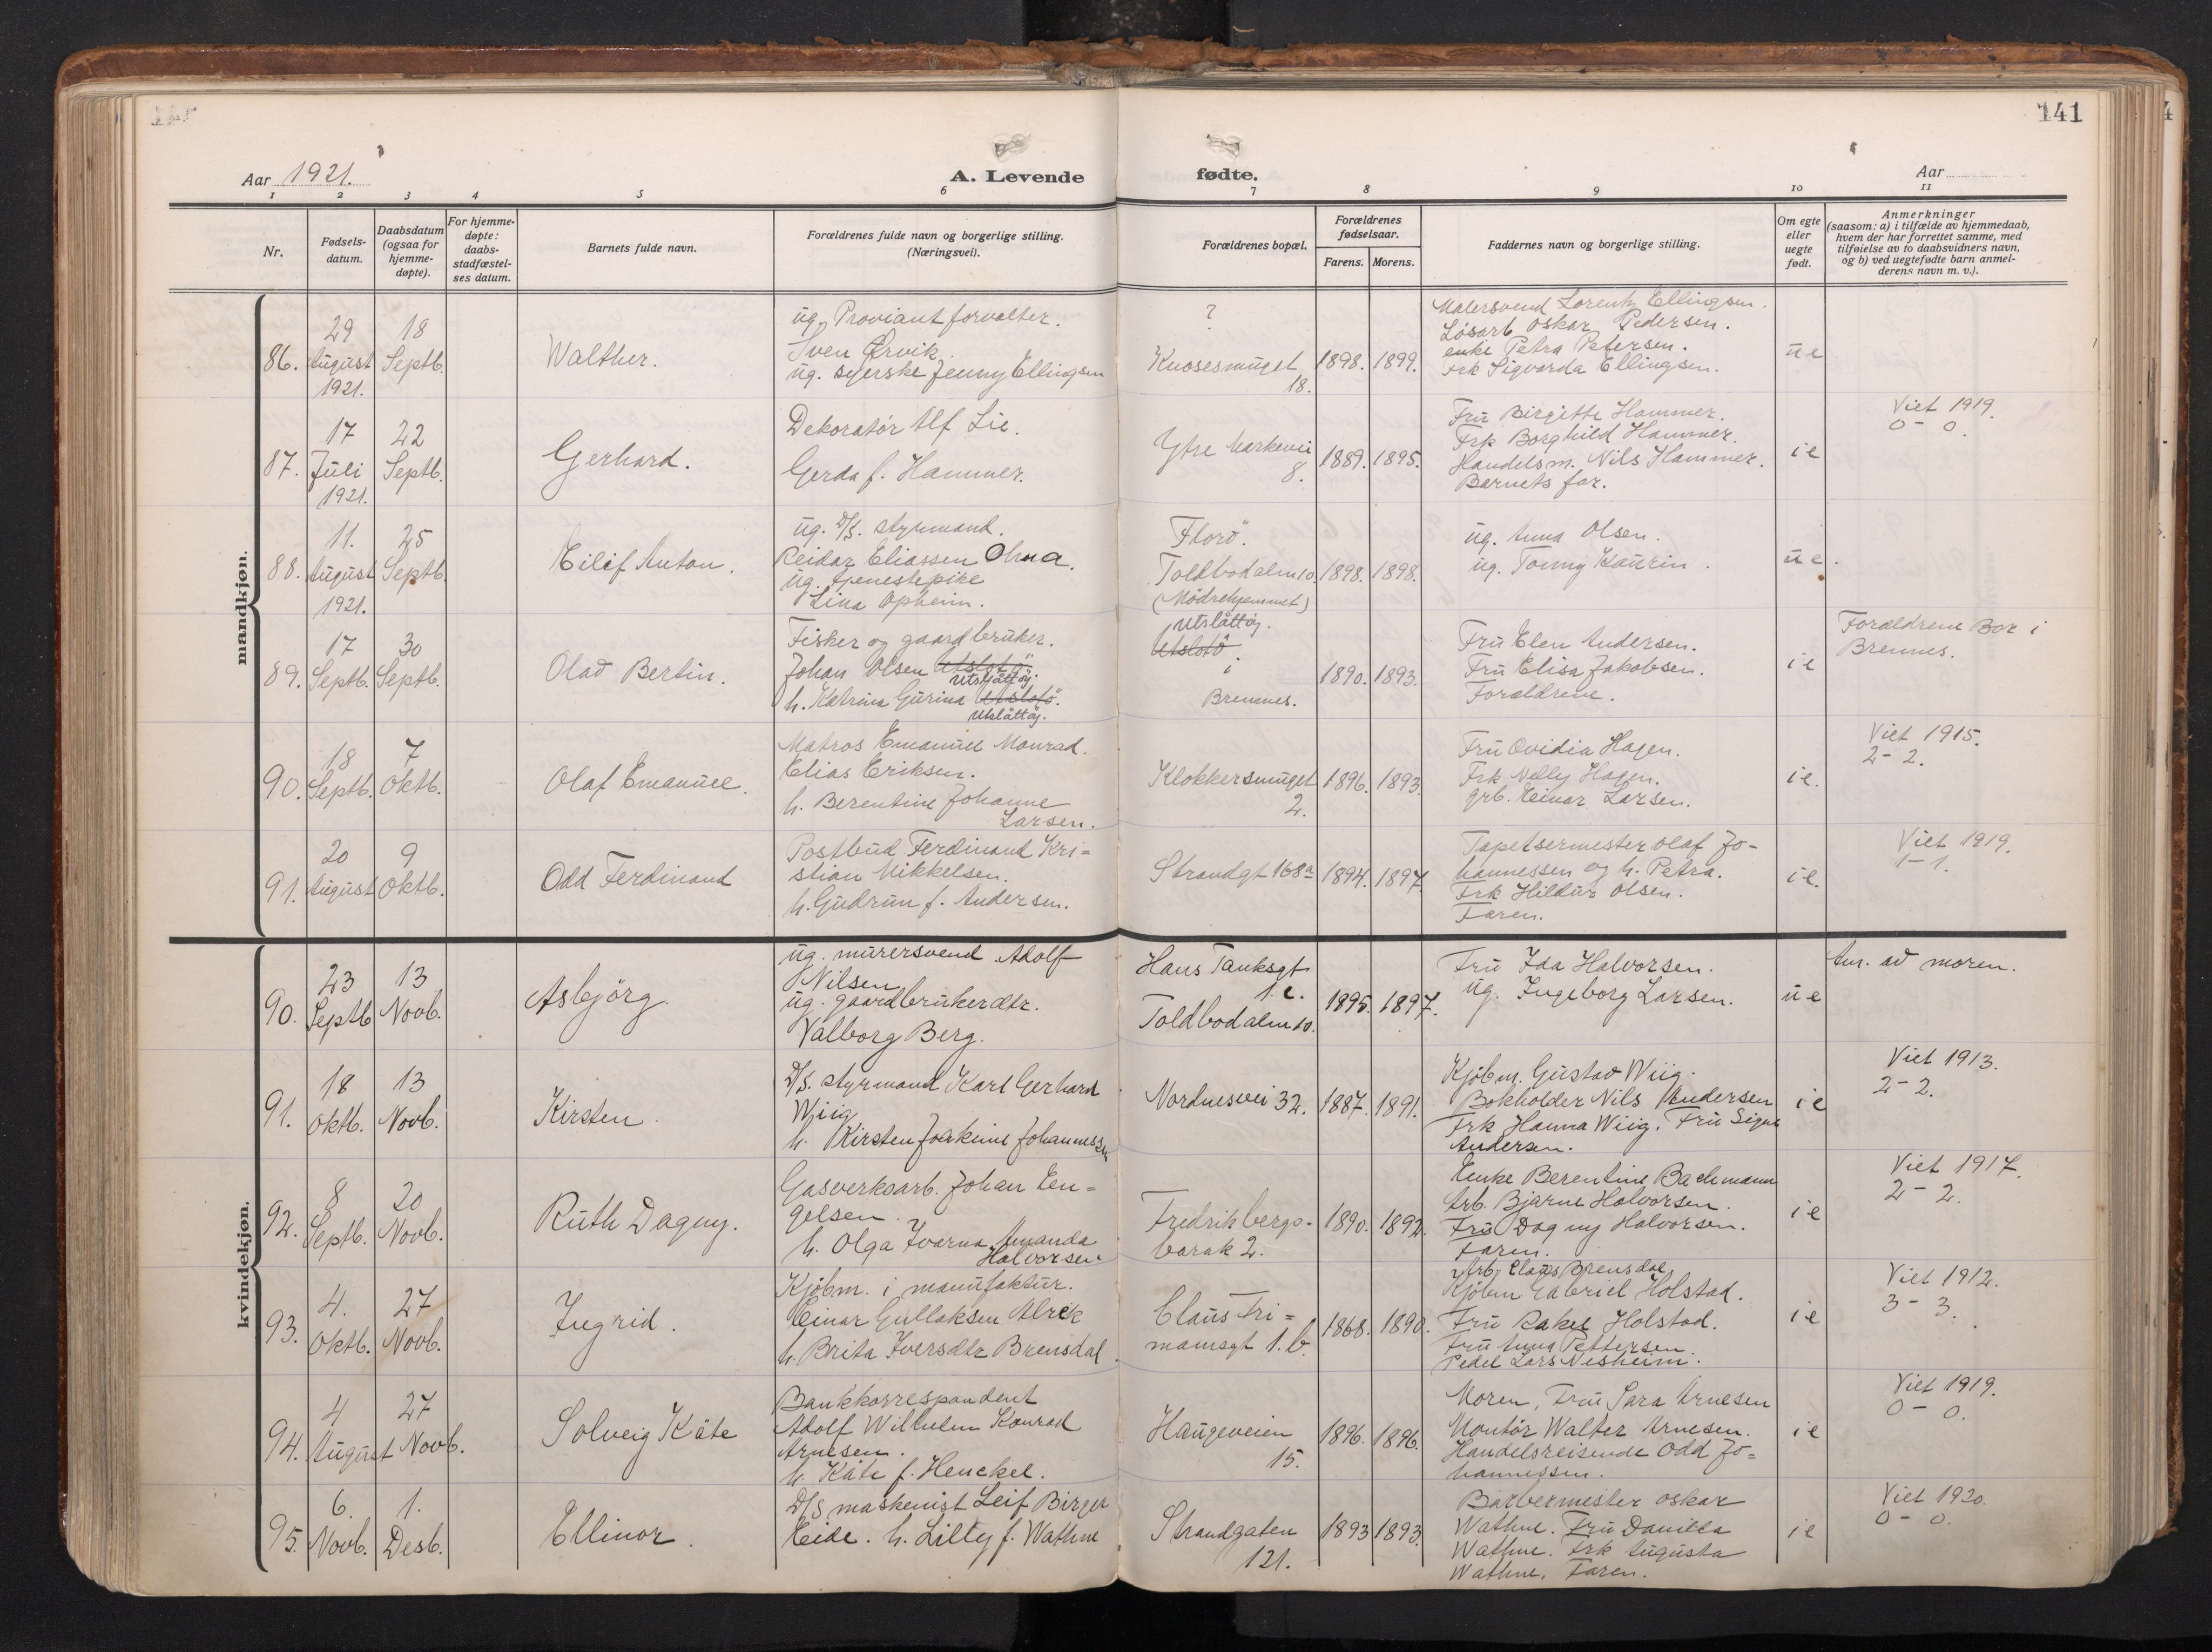 141
Aar 1921.
A. Levende
fødte.
Aar
1 2 3 4 5 6 7 8 9 10 11
Nr.
Fødsels-
datum.
Daabsdatum
(ogsaa for
hjemme-
døpte).
For hjemme-
døpte:
daabs-
stadfæstel-
ses datum.
Barnets fulde navn.
Forældrenes fulde navn og borgerlige stilling.
(Næringsvei).
Forældrenes bopæl.
Forældrenes
fødselsaar.
Farens. Morens.
Faddernes navn og borgerlige stilling.
Om egte
eller
uegte
født.
Anmerkninger
(saasom: a) i tilfælde av hjemmedaab,
hvem der har forrettet samme, med
tilføielse av to daabsvidners navn,
og b) ved uegtefødte barn anmel-
derens navn m. v.).
mandkjøn.
86.
29
August
1921.
18
Septb.
Walther.
ug. Proviantforvalter.
Sven Ørvik.
ug. syerske Jenny Ellingsen
?
Knosesmuget
18.
1898. 1899.
Malersvend Lorentz Ellingsen.
Løsarb. Oskar Pedersen.
enke Petra Petersen.
Frk Sigvarda Ellingsen.
ue
87.
17
Juli
1921.
22
Septb.
Gerhard.
Dekoratør Alf Lie.
Gerda f. Hammer.
Ytre Markevei
8.
1889. 1895.
Fru Birgitte Hammer.
Frk Borghild Hammer.
Handelsm. Nils Hammer.
Barnets far.
ie
Viet 1919.
0 - 0.
88.
11.
August
1921.
25
Septb.
Eilif Anton.
ug. D/S. styrmand.
Reidar Eliassen Ohma.
ug. tjenestepike
Lina Opheim.
Florö.
Toldbodalm 10.
(Mödrehjemmet)
1898. 1898.
ug. Anna Olsen.
ug. Tonny Kaurin.
ue.
89.
17
Septb.
30
Septb.
Olav Bertin.
Fisker og gaardbruker.
Johan Olsen Utslotö.
Utslåttøy.
h. Katrina Gurina Utslotö.
Utslåttøy.
Utslåttøy.
Utslotö
i
Bremnes.
1890. 1893.
Fru Elen Andersen.
Fru Elisa Jakobsen.
Forældrene.
ie
Forældrene Bor i
Bremnes.
90.
18
Septb.
7
Oktb.
Olaf Emanuel.
Matros Emanuel Monrad.
Elias Eriksen.
h. Berentine Johanne
Larsen.
Klokkersmuget
2.
1896. 1893.
Fru Ovidia Hagen.
Frk Nelly Hagen.
grb. Einar Larsen.
ie.
Viet 1915.
2 - 2.
91.
20
August
9
Oktb.
Odd Ferdinand
Postbud Ferdinand Kri=
stian Mikkelsen.
h. Gudrun f. Andersen.
Strandgt 168a
1894. 1897
Tapetsermester Olaf Jo-
hannessen og h. Petra.
Frk Hildur Olsen.
Faren.
ie.
Viet 1919.
1 - 1.
kvindekjøn.
90.
23
Septb
13
Novb.
Asbjörg.
ug. murersvend Adolf
Nilsen
ug. gaardbrukerdtr.
Valborg Berg.
Hans Tanksgt
1.c.
Toldbodalm 10.
1895. 1897.
Fru Ida Halvorsen.
ug. Ingeborg Larsen.
ue
Anm. av moren.
91.
18
Oktb.
13
Novb.
Kirsten.
D/S. styrmand Karl Gerhard
Wiig
h. Kirsten Joakime Johannessen
Nordnesvei 32.
1887. 1891.
Kjøbm. Gustav Wiig.
Bokholder Nils Andersen
Frk Hanna Wiig. Fru Signe
Andersen.
ie
Viet 1913.
2 - 2.
92.
8
Septb.
20
Novb.
Ruth Dagny.
Gasverksarb. Johan En=
gelsen.
h. Olga Ivarna Amanda
Halvorsen.
Fredriksbergs-
barak 2.
1890. 1892.
Enke Berentine Bachmann
Arb. Bjarne Halvorsen.
Fru Dagny Halvorsen.
Faren.
ie
Viet 1917.
2 - 2.
93.
4.
Oktb.
27
Novb.
Ingrid.
Kjøbm. i manufaktur.
Einar Gullaksen Alrek
h. Brita Iversdtr Brensdal.
Claus Fri=
mannsgt 1.b.
1868. 1890.
Arb. Claus Brensdal
Kjøbm Gabriel Holstad.
Fru Rakel Holstad.
Fru Anna Pettersen.
Pedel Lars Nesheim.
ie
Viet 1912.
3 - 3.
94.
4
August
27
Novb.
Solveig Käte
Bankkorrespondent
Adolf Wilhelm Konrad
Arnesen.
h. Käte f. Henckel.
Haugeveien
15.
1896. 1896.
Moren, Fru Sara Arnesen
Montør Walter Arnesen.
Handelsreisende Odd Jo=
hannessen.
ie
Viet 1919.
0 - 0.
95.
6.
Novb.
1.
Desb.
Ellinor.
D/S maskinist Leif Birger
Eide. h. Lilly f. Wathne
Strandgaten
121.
1893 1893.
Barbermester Oskar
Wathne. Fru Danilla
Wathne. Frk Augusta
Wathne. Faren.
ie
Viet 1920.
0 - 0.